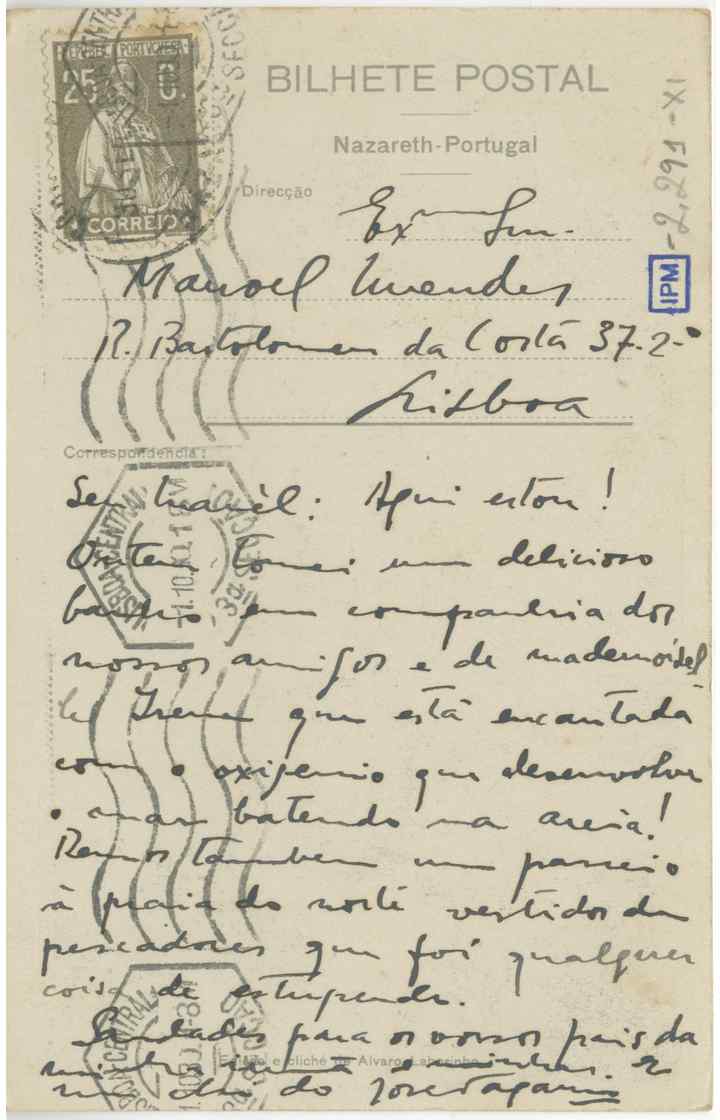 REPUBLICA PORTUGUESA
25 C.
CORREIO
BILHETE POSTAL
Nazareth-Portugal
Direcção
-2,291-XI
IPM
Exmo Snr.
Manoel Mendes
R. Bartolomeu da Costa 37-2-º
Lisboa
Correspondencia:
LISBOA CENTRAL
3ª SECÇÃO
Seu Manèl: Aqui estou!
Ontem tomei um delicioso
banho em companhia dos
nossos amigos e de mademoisel
le Irene que está encantada
com o oxigenio que desenvolve
o mar batendo na areia!
também um passeio
à praia do norte vestidos de
pescadores que foi qualquer
coisa de estupendo.
Saudades para os vossos pais da
minha e minhas. e
do José Tagarro
Edição e cliché de Alvaro Laborinho